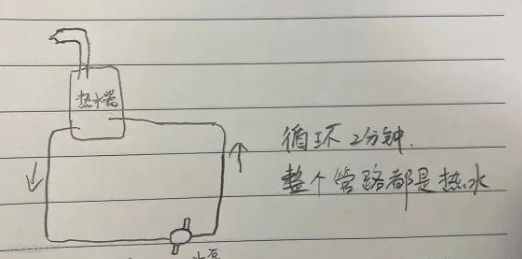 热水器
循环2分钟.
整个管路都是热水